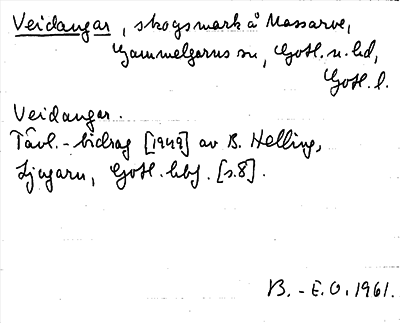 Veidangar, skogsmark å Massarve,
Gammelgarns sn, Gotl. n. hd,
Gotl. l.
Veidangar.
Tävl.-bidrag [1949] av B. Helling,
Ljugarn, Gotl. hbf. [s.8].
B.-E.O. 1961.